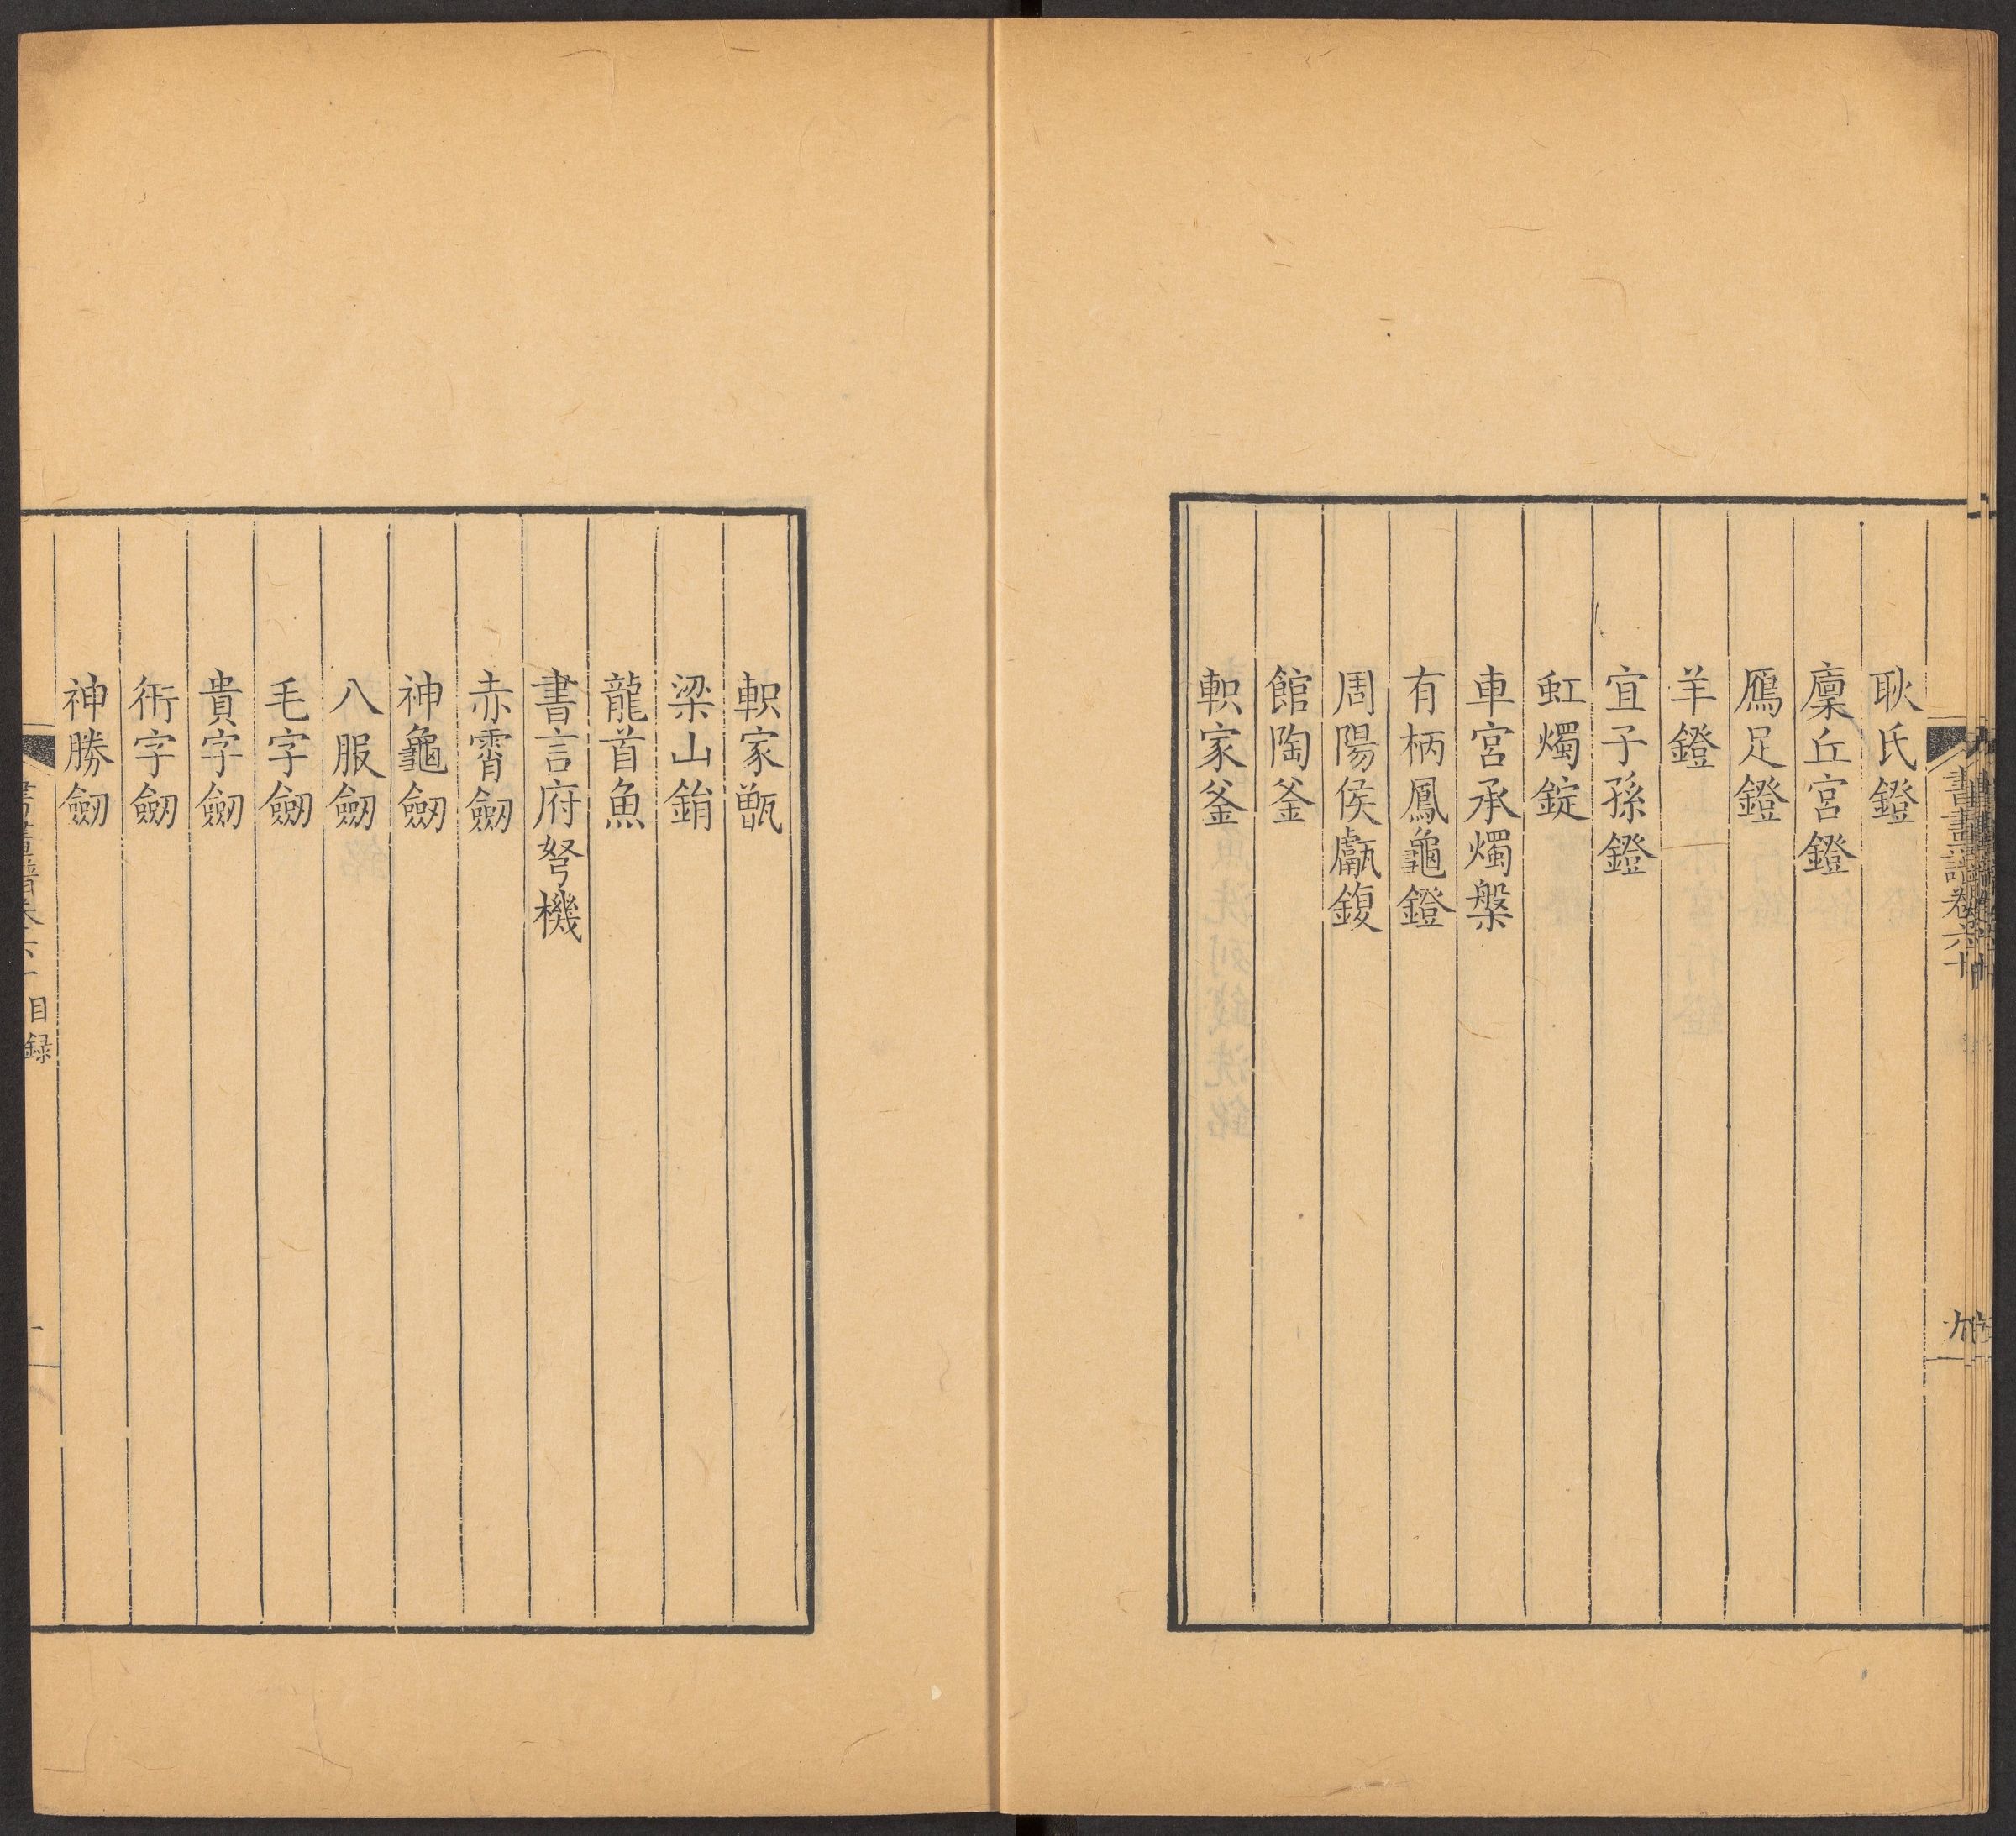 書畫譜卷六十
九
耿氏鐙
廩丘宮鐙
鴈足鐙
羊鐙
宜子孫鐙
虹燭錠
車宮承燭槃
有柄鳳龜鐙
周陽侯甗鍑
館陶釜
軹家釜
軹家甑
梁山鋗
龍首魚
書言府弩機
赤霄劒
神龜劒
八服劒
毛字劒
貴字劒
衎字劒
神勝劒
目録